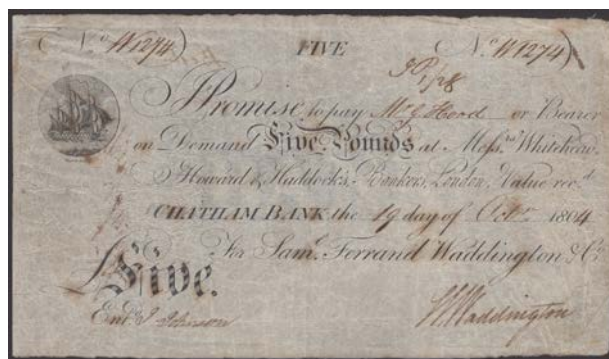 Nº W1274 FIVE Nº W1274
I Promise to pay Mr J Hood or Bearer
on Demand Five Pounds at Messrs Whitehead
Howard & Haddock's, Bankers, London, Value recd.
CHATHAM BANK the 19 day of Octr 1804
For Saml. Ferrand Waddington & Co.
£Five.
Entd J Johnson
S F Waddington